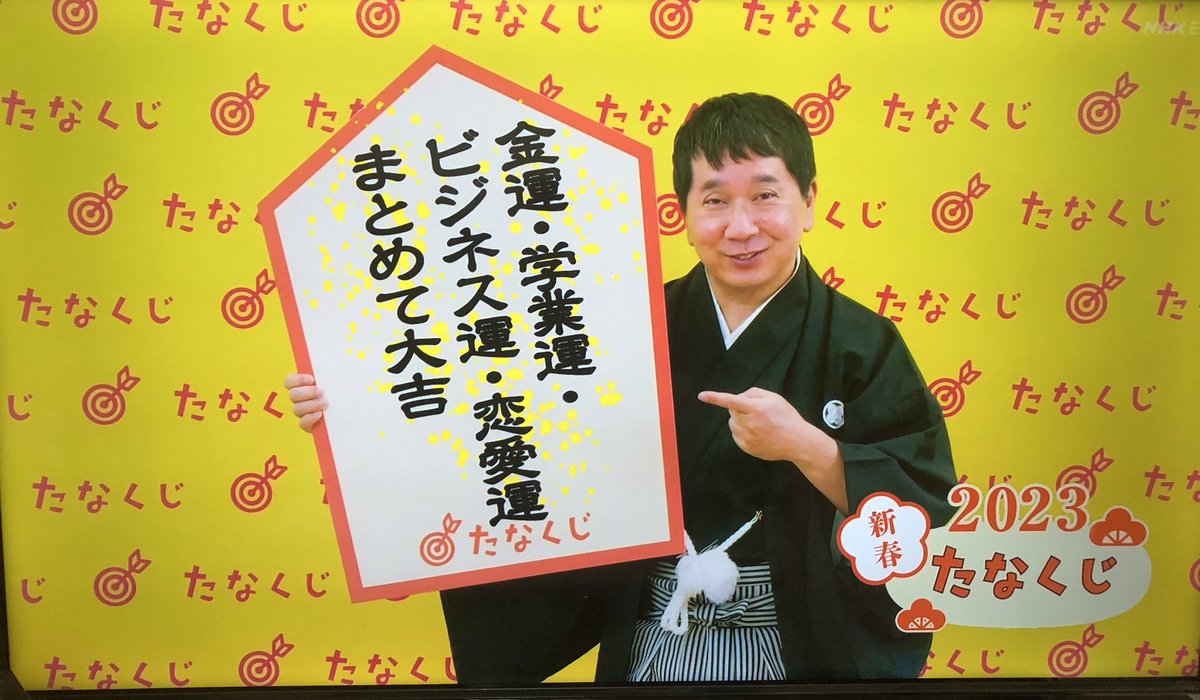 金運・学業運・
ビジネス運・恋愛運
まとめて大吉
たなくじ
新春
2023
たなくじ
NHK E
たなくじ たなくじ たなくじ たなくじ たなくじ
たなくじ